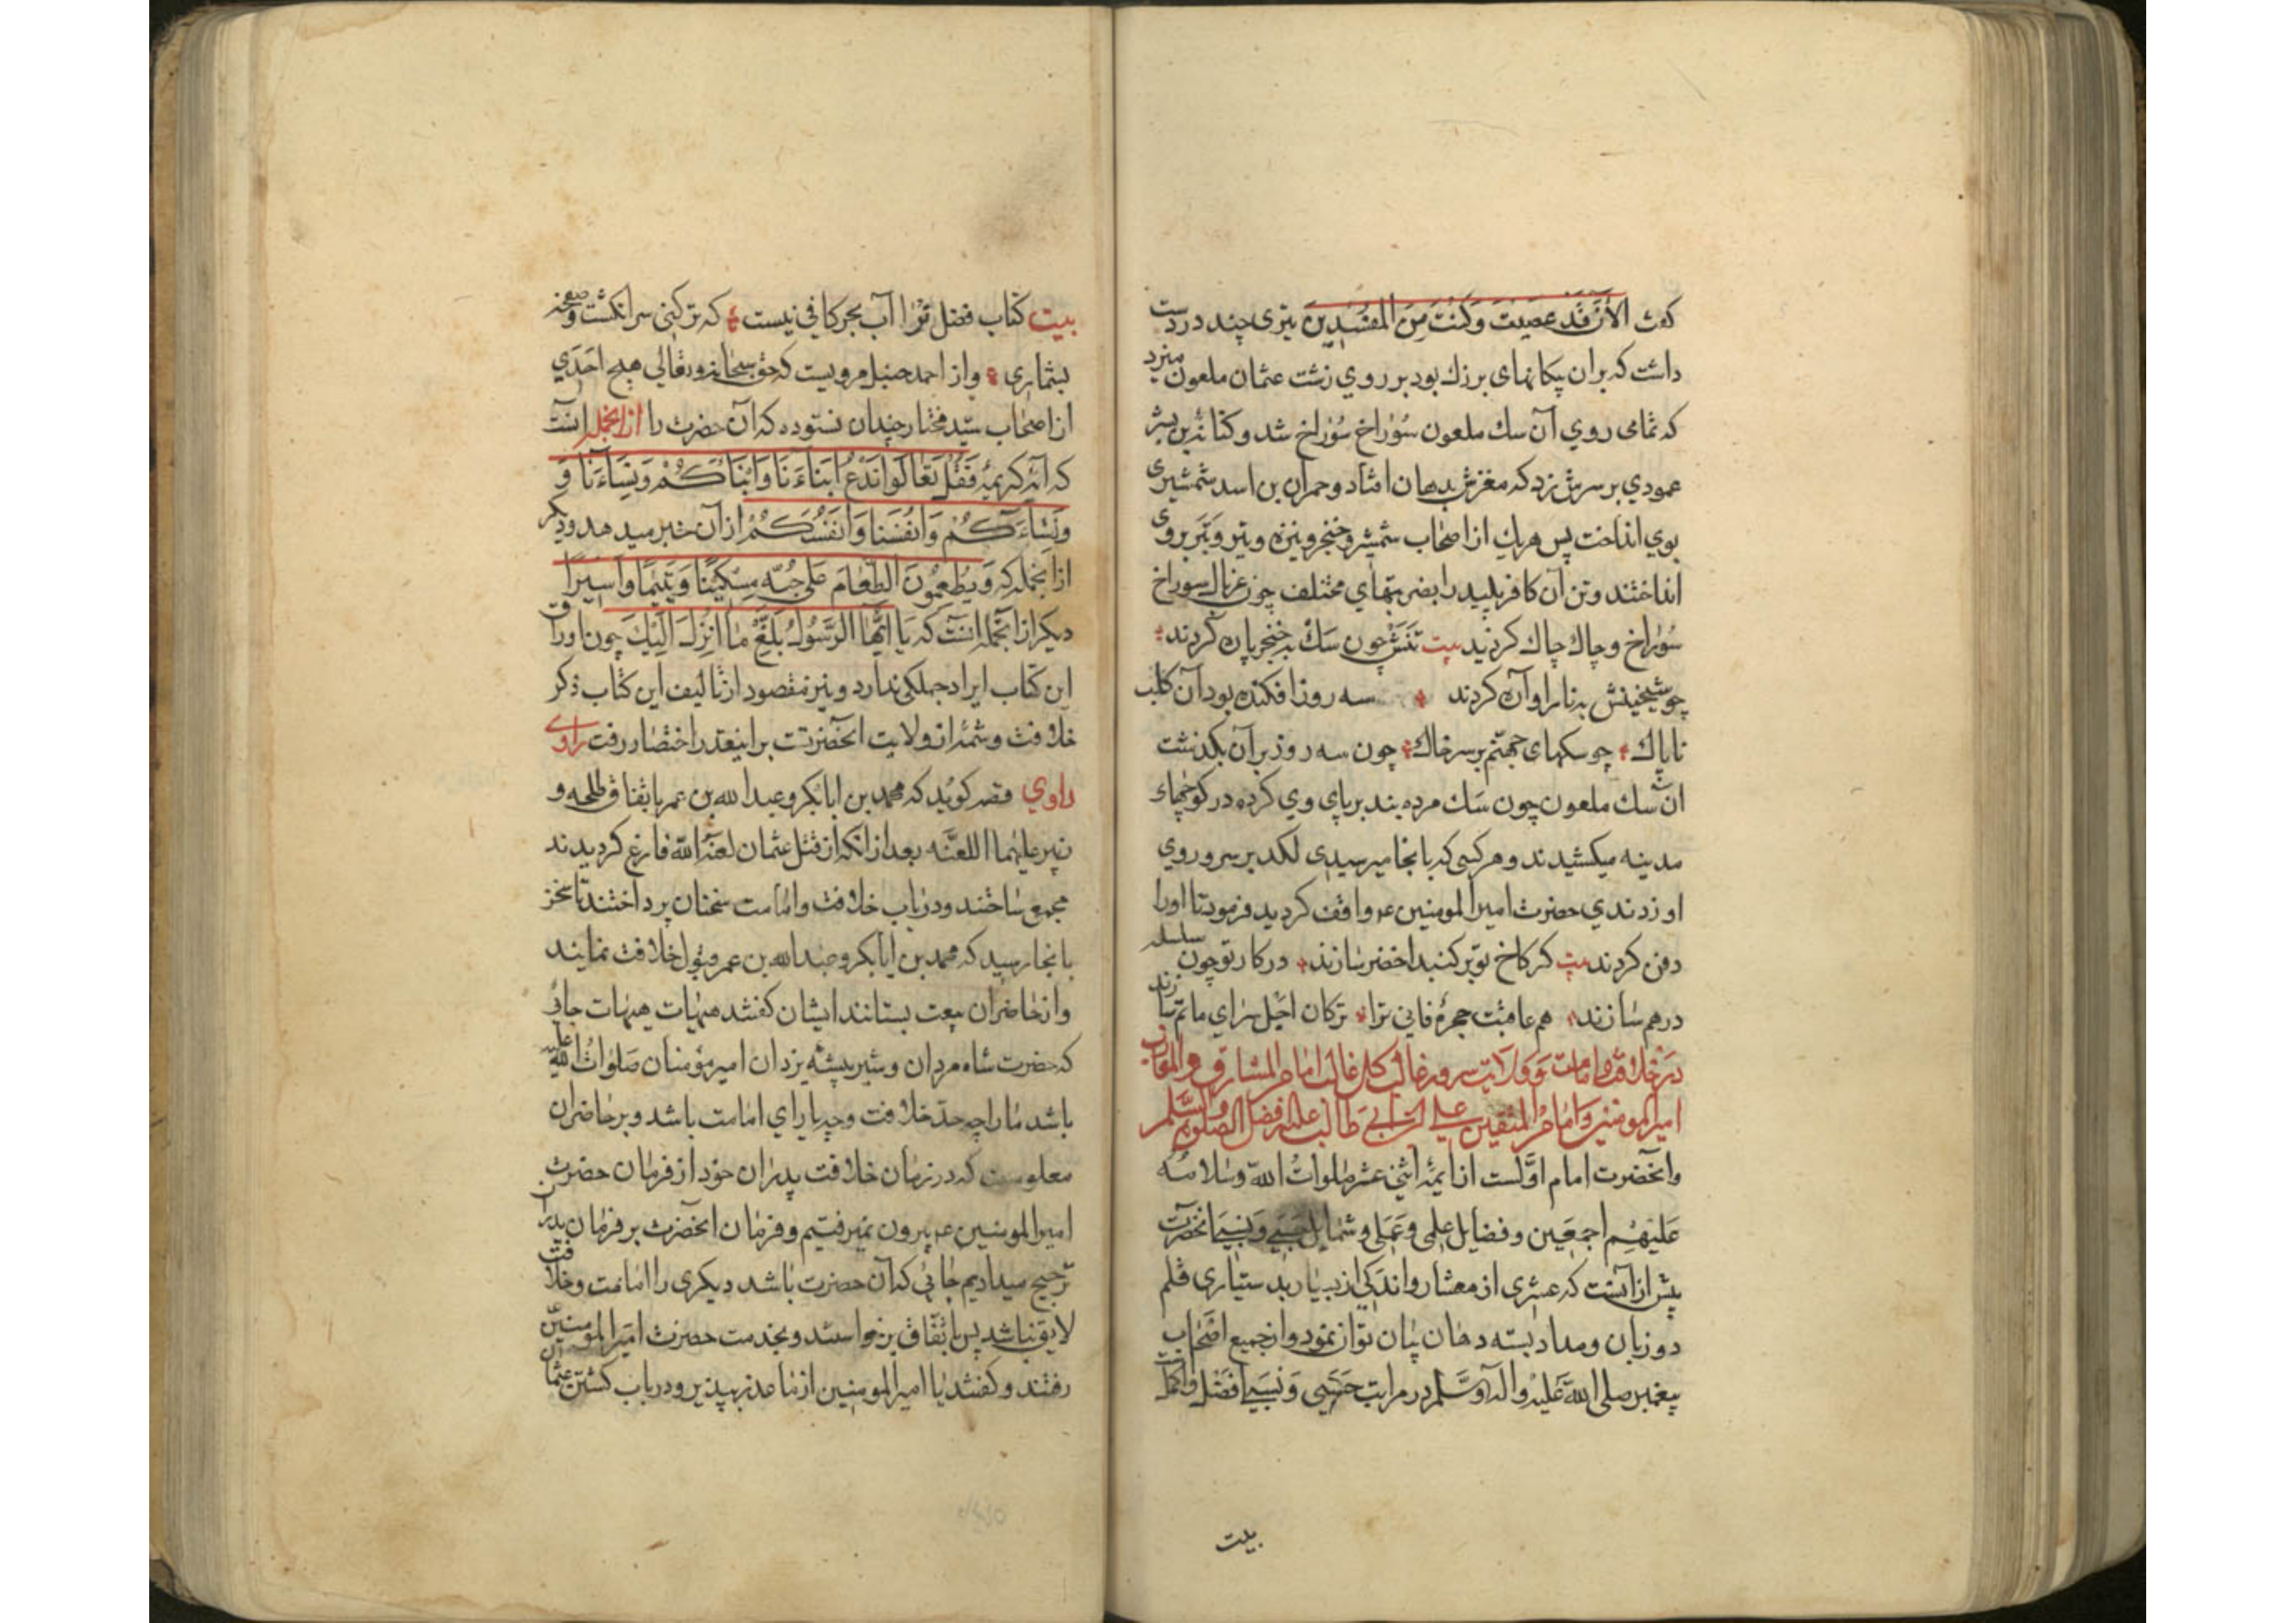 کفت الآن قد عصیت وکنت من المفسدین تیری چند در دست
داشت که بران پیکانهای بزرك بود بر روی زشت عثمان ملعون میزد
که تمامی روي آن سك ملعون سوراخ سوراخ شد وکنانة بن بشر
عمودي بر سرش زد که مغزش بدهان افتاد وحمران بن اسد شمشیری
بوي انداخت پس هریك از اصحاب شمشیر وخنجر ونیزه وتیر وتبر بروی
انداختند وتن آن کافر پلید را بضربتهاي مختلف چون غربال سوراخ
سوراخ وچاك چاك کردید بیت تنش چون سك بخنجر پاره کردند
چو شیخینش بنار اواره کردند سه روز افکنده بود آن کلب
ناپاك چو سکهای جهنم بر سر خاك چون سه روز بر آن بکذشت
ان سك ملعون چون سك مرده بند بر پاي وي کرده در کوچهاء
مدینه میکشیدند وهر کسی که بانجا میرسیدی لکد بر سر وروي
او زدندي حضرت امیر المومنین عم واقف کردید فرمود تا اورا
دفن کردند بیت کر کاخ تو بر کنبد اخضر سازند در کار تو چون سلسله
درهم سازند هم عاقبت حجرۀ فانی ترا ترکان اجل سراي ماتم سازند
در خلافت وامامت وولایت سرور غالب کل غالب امام المشارق والمغارب
امیر المومنین وامام المتقین علی ابن ابی طالب علیه افضل الصلوة والسلم
وانحضرت امام اولست از ایمۀ اثنی عشر صلوات الله وسلامه
علیهم اجمعین وفضایل علمی وعملی وشمایل حسبی ونسبی انحضرت
بیش از آنست که عشری از معشار واندکی از بسیار بدستیاری قلم
دو زبان ومداد بسته دهان بیان توان نمود واز جمیع اصحاب
پیغمبر صلی الله علیه واله وسلم در مراتب حسبی ونسبی افضل واکمل
بیت
بیت کتاب فضل ترا آب بحر کافی نیست که تر کنی سر انکشت وصفحه
بشماری واز احمد حنبل مرویست که حق سبحانه وتعالی هیچ احدي
از اصحاب سید مختار چندان نستوده که آن حضرت را ازانجمله انست
که آیۀ کریمۀ فقل تعالوا ندع ابناءنا وابناءکم ونساءنا و
ونساءکم وانفسنا وانفسکم از آن خبر میدهد ودیکر
ازانجمله که ویطعمون الطعام علی حبه مسکینا ویتیما واسیرا
دیکر ازانجمله انست که یا ایها الرسول بلغ ما انزل الیك چون اوراق
این کتاب ایراد جملکی ندارد ونیز مقصود از تالیف این کتاب ذکر
خلافت وشمۀ از ولایت انحضرتت براینقدر اختصار رفت راوي
راوي قصه کوید که محمد بن ابابکر وعبد الله بن عمر باتفاق طلحه و
زبیر علیهما اللعنه بعد از انکه از قتل عثمان لعنه الله فارغ کردیدند
مجمع ساختند ودر باب خلافت وامامت سخنان پرداختند تا سخن
بانجا رسید که محمد بن ابابکر وعبد الله بن عمر قبول خلافت نمایند
واز حاضران بیعت بستانند ایشان کفتند هیهات هیهات جائی
که حضرت شاه مردان وشیر بیشه یزدان امیر مؤمنان صلوات الله علیه
باشد مارا چه حد خلافت وچه یاراي امامت باشد وبر حاضران
معلومست که در زمان خلافت پدران خود از فرمان حضرت
امیر المومنین عم بیرون نمیرفتیم وفرمان انحضرت بر فرمان پدران
ترجیح میدادیم جائی که آن حضرت باشد دیکری را امامت وخلافت
لایق نباشد پس باتفاق برخواستند وبخدمت حضرت امیر المومنین
رفتند وکفتند یا امیر المومنین از ما عذر بپذیر ودر باب کشتن عثمان